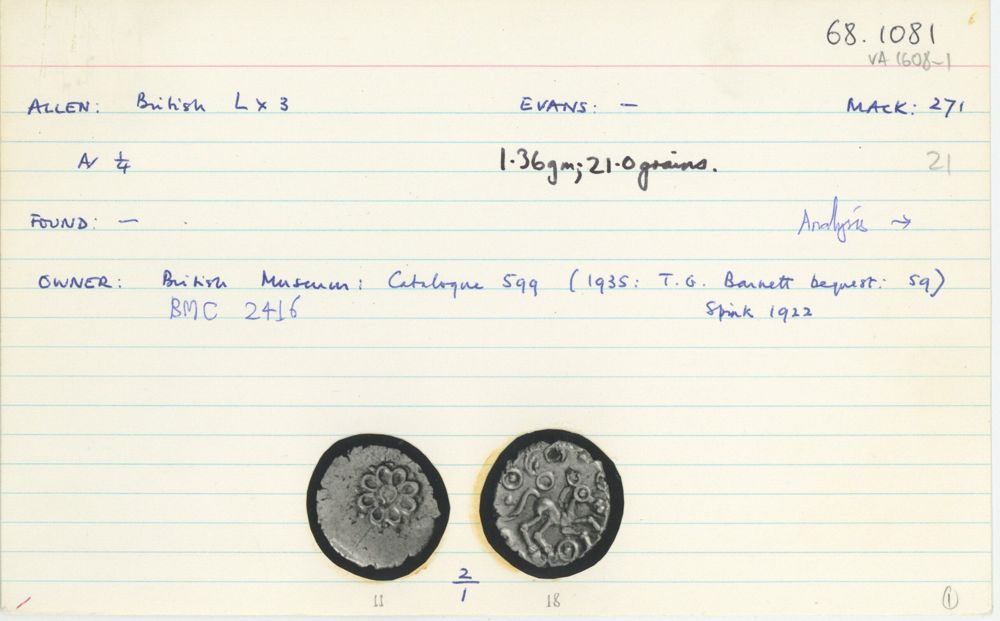 68.1081
VA 1608-1
ALLEN: British L x 3 EVANS: — MACK: 271
A/ 1/4 1.36gm; 21.0 grains. 21
FOUND: — Analysis →
OWNER: British Museum: Catalogue 599 (1935: T.G. Barnett bequest: 59)
BMC 2416 Spink 1922
2/1
11 18 1